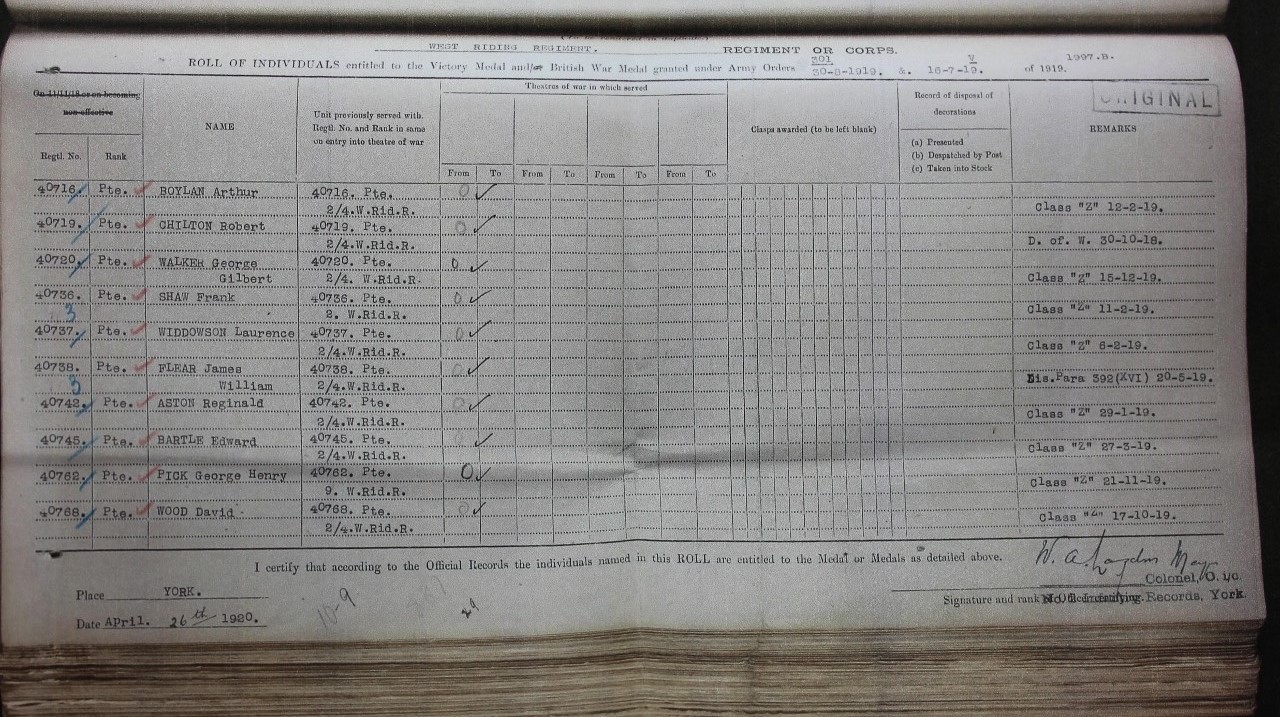 WEST RIDING REGIMENT. REGIMENT OR CORPS.
ROLL OF INDIVIDUALS entitled to the Victory Medal and/or British War Medal granted under Army Orders 301 30-8-1919. &. V 16-7-19. of 1919. 1997.B.
ORIGINAL
On 11/11/18 or on becoming non-effective
Regtl. No.
Rank
NAME
Unit previously served with. Regtl. No. and Rank in same on entry into theatre of war
Theatres of war in which served
From To From To From To From To
Clasps awarded (to be left blank)
Record of disposal of decorations
(a) Presented
(b) Despatched by Post
(c) Taken into Stock
REMARKS
40716. Pte. BOYLAN Arthur 40716. Pte.
2/4.W.Rid.R. Class "Z" 12-2-19.
40719. Pte. CHILTON Robert 40719. Pte.
2/4.W.Rid.R. D. of. W. 30-10-18.
40720. Pte. WALKER George 40720. Pte.
Gilbert 2/4. W.Rid.R. Class "Z" 15-12-19.
40736. Pte. SHAW Frank 40736. Pte.
3 2. W.Rid.R. Class "Z" 11-2-19.
40737. Pte. WIDDOWSON Laurence 40737. Pte.
2/4.W.Rid.R. Class "Z" 6-2-19.
40738. Pte. FLEAR James 40738. Pte.
3 William 2/4.W.Rid.R. Dis.Para 392(XVI) 20-5-19.
40742. Pte. ASTON Reginald 40742. Pte.
2/4.W.Rid.R. Class "Z" 29-1-19.
40745. Pte. BARTLE Edward 40745. Pte.
2/4.W.Rid.R. Class "Z" 27-3-19.
40762. Pte. PICK George Henry 40762. Pte.
9. W.Rid.R. Class "Z" 21-11-19.
40768. Pte. WOOD David 40768. Pte.
2/4.W.Rid.R. Class "Z" 17-10-19.
I certify that according to the Official Records the individuals named in this ROLL are entitled to the Medal or Medals as detailed above.
Place YORK.
Date April. 26th 1920.
10-9
29
W. A.
Colonel, O. i/o.
Signature and rank of Officer certifying.
No. 2 Records, York.